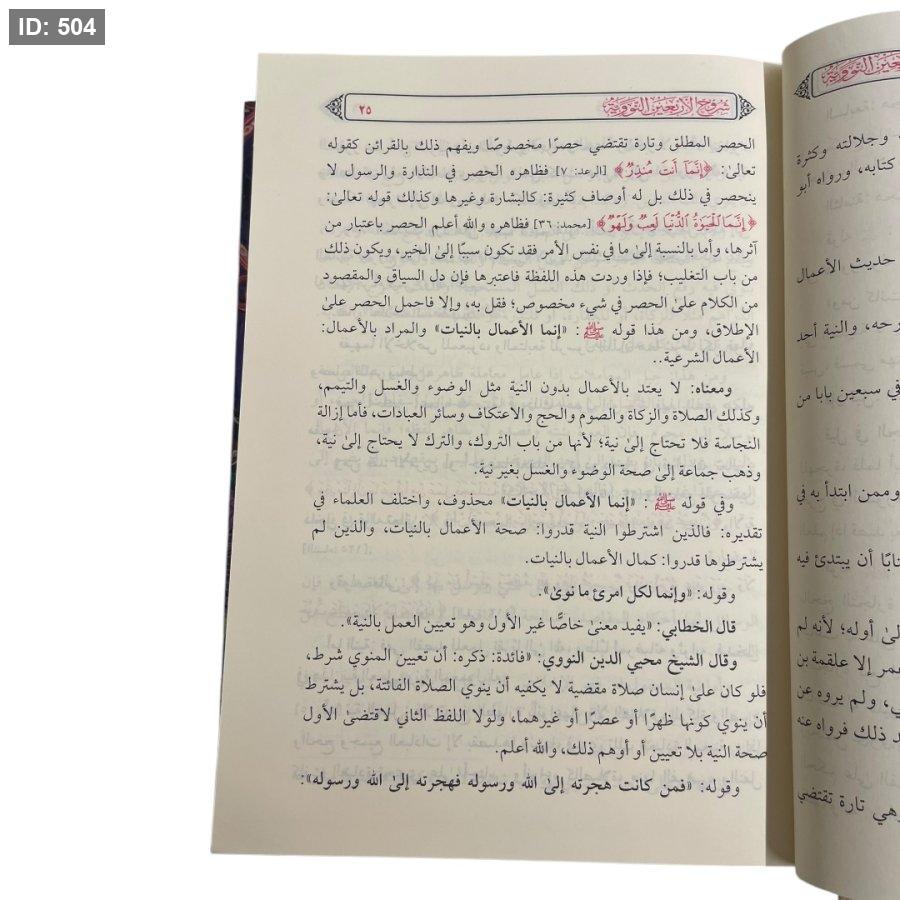 ID: 504
شروح الأربعين النووية ٢٥
الحصر المطلق وتارة تقتضي حصرًا مخصوصًا ويفهم ذلك بالقرائن كقوله
تعالىٰ: ﴿إِنَّمَا أَنتَ مُنذِرٌ﴾ [الرعد: ٧] فظاهره الحصر في النذارة والرسول لا
ينحصر في ذلك بل له أوصاف كثيرة: كالبشارة وغيرها وكذلك قوله تعالىٰ:
﴿إِنَّمَا الْحَيَوٰةُ الدُّنْيَا لَعِبٌ وَلَهْوٌ﴾ [محمد: ٣٦] فظاهره والله أعلم الحصر باعتبار من
آثرها، وأما بالنسبة إلىٰ ما في نفس الأمر فقد تكون سببًا إلىٰ الخير، ويكون ذلك
من باب التغليب؛ فإذا وردت هذه اللفظة فاعتبرها فإن دل السياق والمقصود
من الكلام علىٰ الحصر في شيء مخصوص؛ فقل به، وإلا فاحمل الحصر علىٰ
الإطلاق، ومن هذا قوله ﷺ: «إنما الأعمال بالنيات» والمراد بالأعمال:
الأعمال الشرعية..
ومعناه: لا يعتد بالأعمال بدون النية مثل الوضوء والغسل والتيمم،
وكذلك الصلاة والزكاة والصوم والحج والاعتكاف وسائر العبادات، فأما إزالة
النجاسة فلا تحتاج إلىٰ نية؛ لأنها من باب التروك، والترك لا يحتاج إلىٰ نية،
وذهب جماعة إلىٰ صحة الوضوء والغسل بغير نية.
وفي قوله ﷺ: «إنما الأعمال بالنيات» محذوف، واختلف العلماء في
تقديره: فالذين اشترطوا النية قدروا: صحة الأعمال بالنيات، والذين لم
يشترطوها قدروا: كمال الأعمال بالنيات.
وقوله: «وإنما لكل امرئ ما نوىٰ».
قال الخطابي: «يفيد معنىٰ خاصًّا غير الأول وهو تعيين العمل بالنية».
وقال الشيخ محيي الدين النووي: «فائدة: ذكره: أن تعيين المنوي شرط،
فلو كان علىٰ إنسان صلاة مقضية لا يكفيه أن ينوي الصلاة الفائتة، بل يشترط
أن ينوي كونها ظهرًا أو عصرًا أو غيرهما، ولولا اللفظ الثاني لاقتضىٰ الأول
صحة النية بلا تعيين أو أوهم ذلك، والله أعلم.
وقوله: «فمن كانت هجرته إلىٰ الله ورسوله فهجرته إلىٰ الله ورسوله»:
، وجلالته وكثرة
كتابه، ورواه أبو
حديث الأعمال
رحه، والنية أحد
في سبعين بابا من
وممن ابتدأ به في
تابًا أن يبتدئ فيه
لىٰ أوله؛ لأنه لم
عمر إلا علقمة بن
ي، ولم يروه عن
د ذلك فرواه عنه
وهي تارة تقتضي